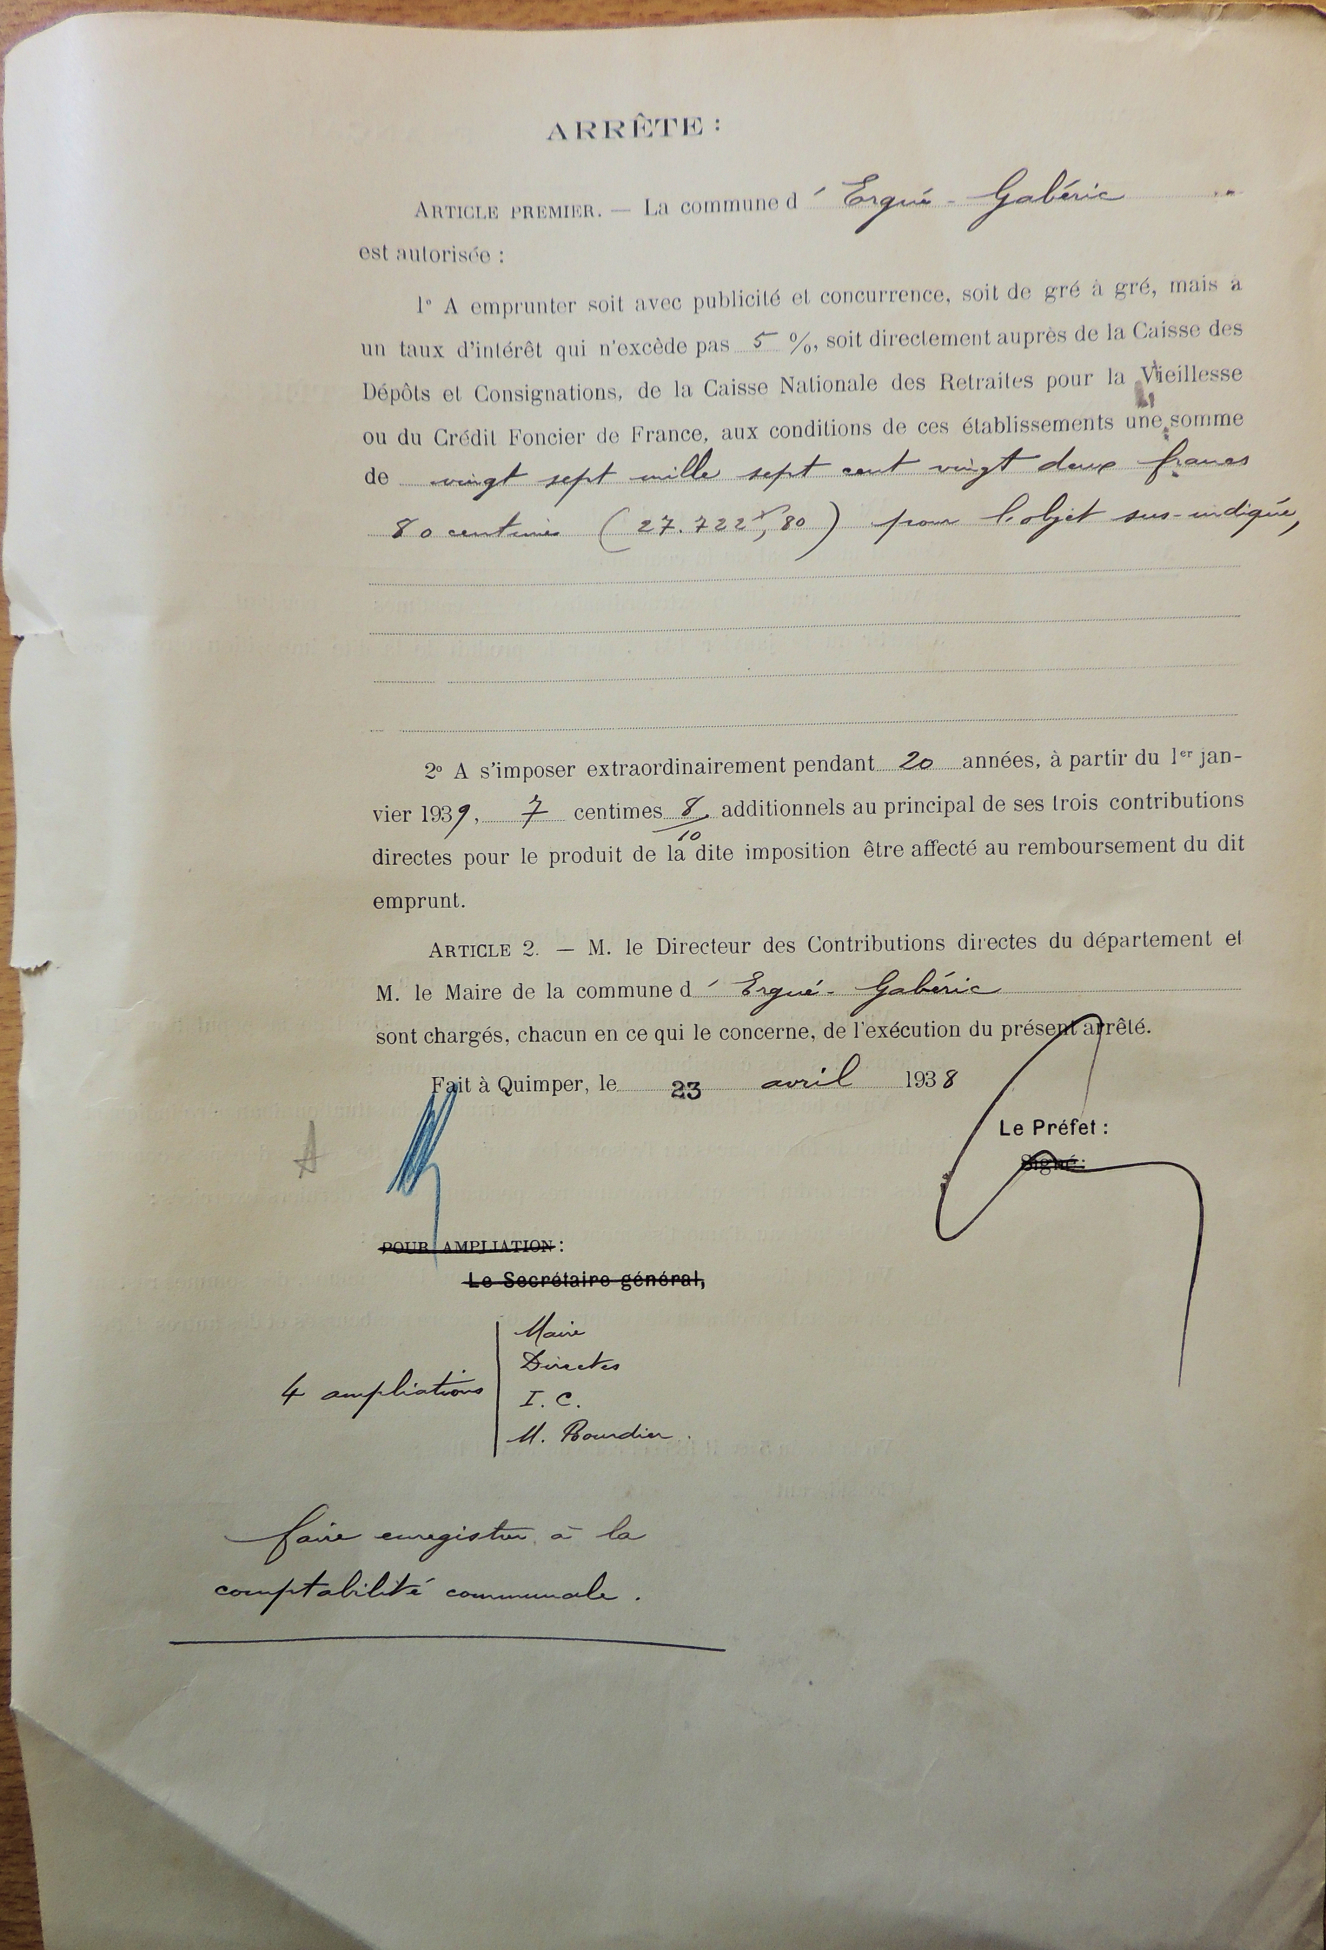 ARRÊTE :
ARTICLE PREMIER. — La commune d'Ergué-Gabéric
est autorisée :
1° A emprunter soit avec publicité et concurrence, soit de gré à gré, mais à
un taux d'intérêt qui n'excède pas 5 %, soit directement auprès de la Caisse des
Dépôts et Consignations, de la Caisse Nationale des Retraites pour la Vieillesse
ou du Crédit Foncier de France, aux conditions de ces établissements une somme
de vingt sept mille sept cent vingt deux francs
80 centimes (27.722f,80) pour l'objet sus-indiqué,
2° A s'imposer extraordinairement pendant 20 années, à partir du 1er jan-
vier 1939, 7 centimes 8/10 additionnels au principal de ses trois contributions
directes pour le produit de la dite imposition être affecté au remboursement du dit
emprunt.
ARTICLE 2. — M. le Directeur des Contributions directes du département et
M. le Maire de la commune d'Ergué-Gabéric
sont chargés, chacun en ce qui le concerne, de l'exécution du présent arrêté.
Fait à Quimper, le 23 avril 1938
Le Préfet :
Signé :
A
POUR AMPLIATION :
Le Secrétaire général,
4 ampliations
Maire
Directes
I. C.
M. Bourdier.
faire enregistrer à la
comptabilité communale.